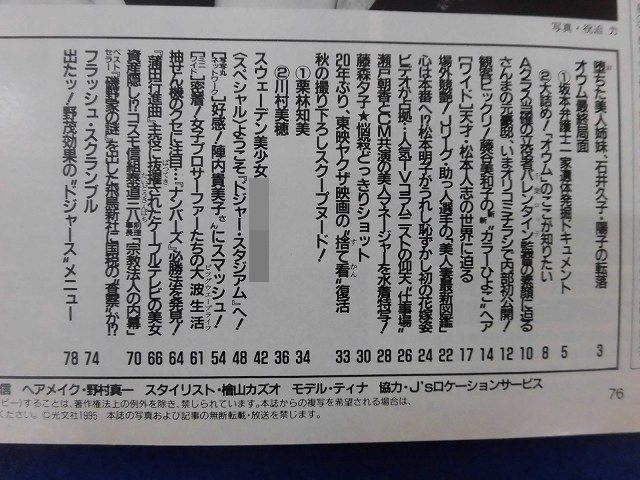 写真・祝迫 力
堕ちた“美人姉妹”、石井久子・陽子の転落 3
オウム最終局面
①坂本弁護士一家遺体発掘ドキュメント 5
②大詰め!「オウム」のここが知りたい 8
Aクラス当確の千葉ロッテバレンタイン監督の素顔に迫る 10
さんまの元豪邸、いまオリミキチラシで内部初公開! 12
観客ビックリ!藤谷美和子の新“カラーひよこ”ヘア 14
[ワイド]天才・松本人志の世界に迫る 17
場外競艶!Jリーグ・助っ人選手の「美人妻最新図鑑」 22
心は本番へ!?松本明子がうれし恥ずかし初の花嫁姿 24
ビデオが占拠…人気TVコラムニストの仰天“仕事場” 26
瀬戸朝香とCM共演の美人マネージャーを水着直写! 28
藤森夕子★悩殺どっきりショット 30
20年ぶり、東映ヤクザ映画の“捨て看”復活 33
秋の撮り下ろしスクープヌード!
①栗林知美 34
②川村美穂 36
スウェーデン美少女 42
〈スペシャル〉ようこそ『ドジャー・スタジアム』へ! 48
好感!陣内貴美子さんにスマッシュ! 54
[ワイド]密着!女子プロサーファーたちの大波生活 61
抽せん機のクセに注目…『ナンバーズ』必勝法を発見! 64
『蒲田行進曲』主役に抜擢されたケーブルテレビの美女 66
資産隠し!?コスモ信組泰道三八前理事長「宗教法人の内幕」 70
ベストセラー『磯野家の謎』を出した飛鳥新社に国税の“査察”が!?
フラッシュ・スクランブル 74
出たッ!野茂効果の“ドジャース”メニュー 78
信 ヘアメイク・野村真一 スタイリスト・檜山カズオ モデル・ティナ 協力・J'sロケーションサービス
76
ピー)することは、著作権法上の例外を除き、禁じられています。本誌からの複写を希望される場合は、
ください。©光文社1995 本誌の写真および記事の無断転載・放送を禁じます。